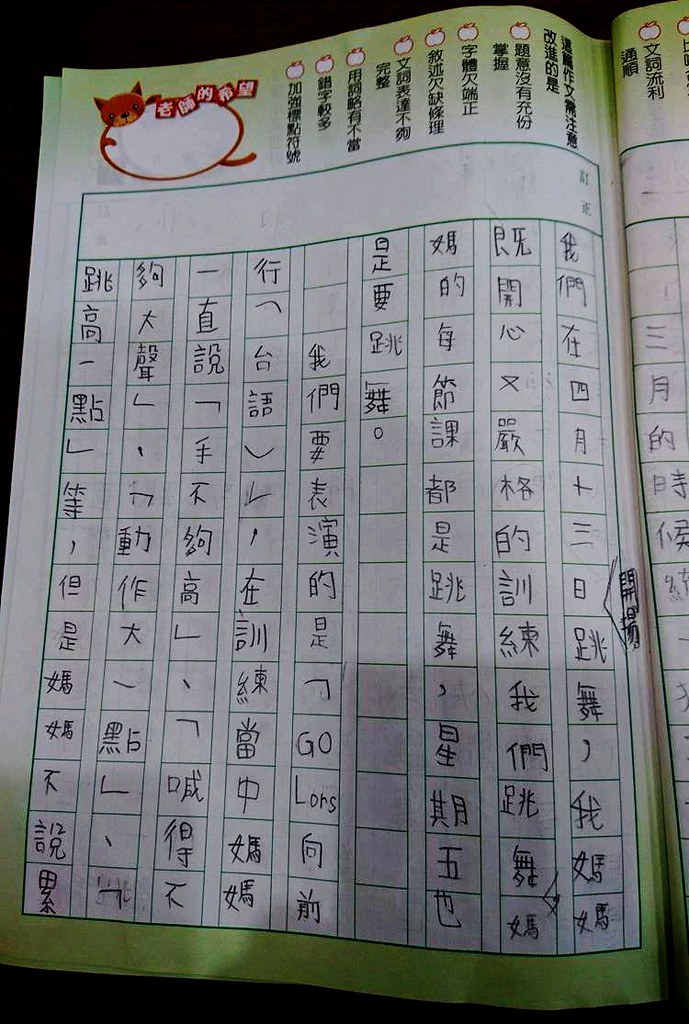 文詞流利
通順
三月的時候
這篇作文需注意
改進的是
題意沒有充份
掌握
字體欠端正
敘述欠缺條理
文詞表達不夠
完整
用詞略有不當
錯字較多
加強標點符號
老師的希望
訂正
開揚
我們在四月十三日跳舞,我媽媽
既開心又嚴格的訓練我們跳舞媽
媽的每節課都是跳舞,星期五也
是要跳舞。
我們要表演的是「GO Lons向前
行(台語)」,在訓練當中媽媽
一直說「手不夠高」、「喊得不
夠大聲」、「動作大一點」、「
跳高一點」等,但是媽媽不說累